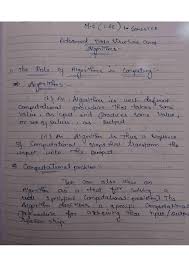 M.C.A (1st) Semester
Advanced Data Structure and
Algorithms
The Role of Algorithms in Computing:-
Algorithms:-
(i) An Algorithm is well defined
Computational procedure that takes some
value, as input and produces some value,
or set of values, as output
(ii) An Algorithm is thus a sequence
of Computational steps that transform the
input into the output
Computational problem:
We can also view an
Algorithm as a tool for solving a
well specified Computational problem. The
Algorithm describes a specific Computational
procedure for achieving that input/output
relation ship.